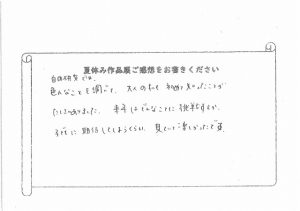 夏休み作品展ご感想をお書きください
自由研究では、
色んなことを調べて、大人の私も初めて知ったことが
たくさんありました。来年はどんなことに挑戦するか、
すでに期待してしまうくらい、見ていて楽しかったです。